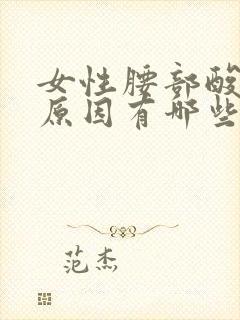 女性腰部酸
原因有哪些
范杰